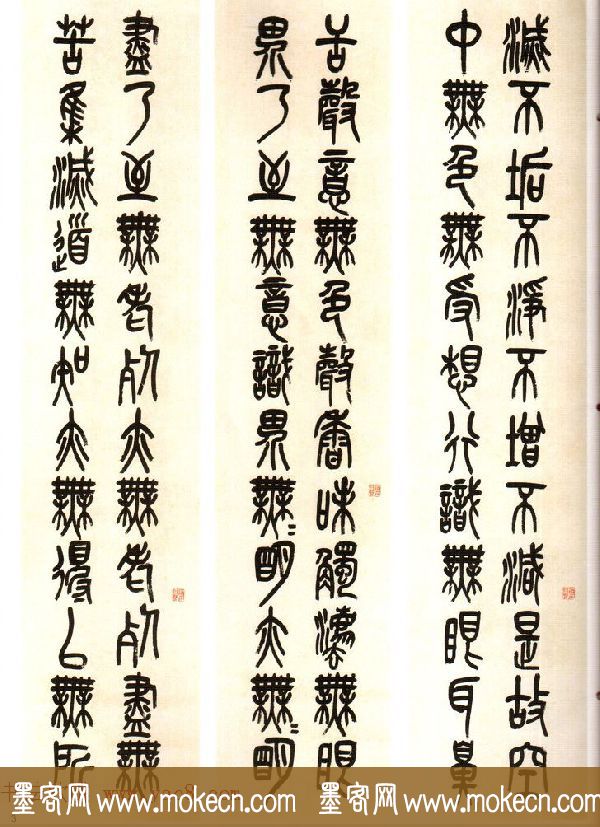 滅不垢不淨不增不減是故空
中無色無受想行識無眼耳鼻
舌聲意無色聲香味觸法無眼
界乃至無意識界無〻明亦無〻明
盡乃至無老死亦無老死盡無
苦集滅道無知亦無得以無所
墨客网 www.mokecn.com 墨客网 www.mokecn.com